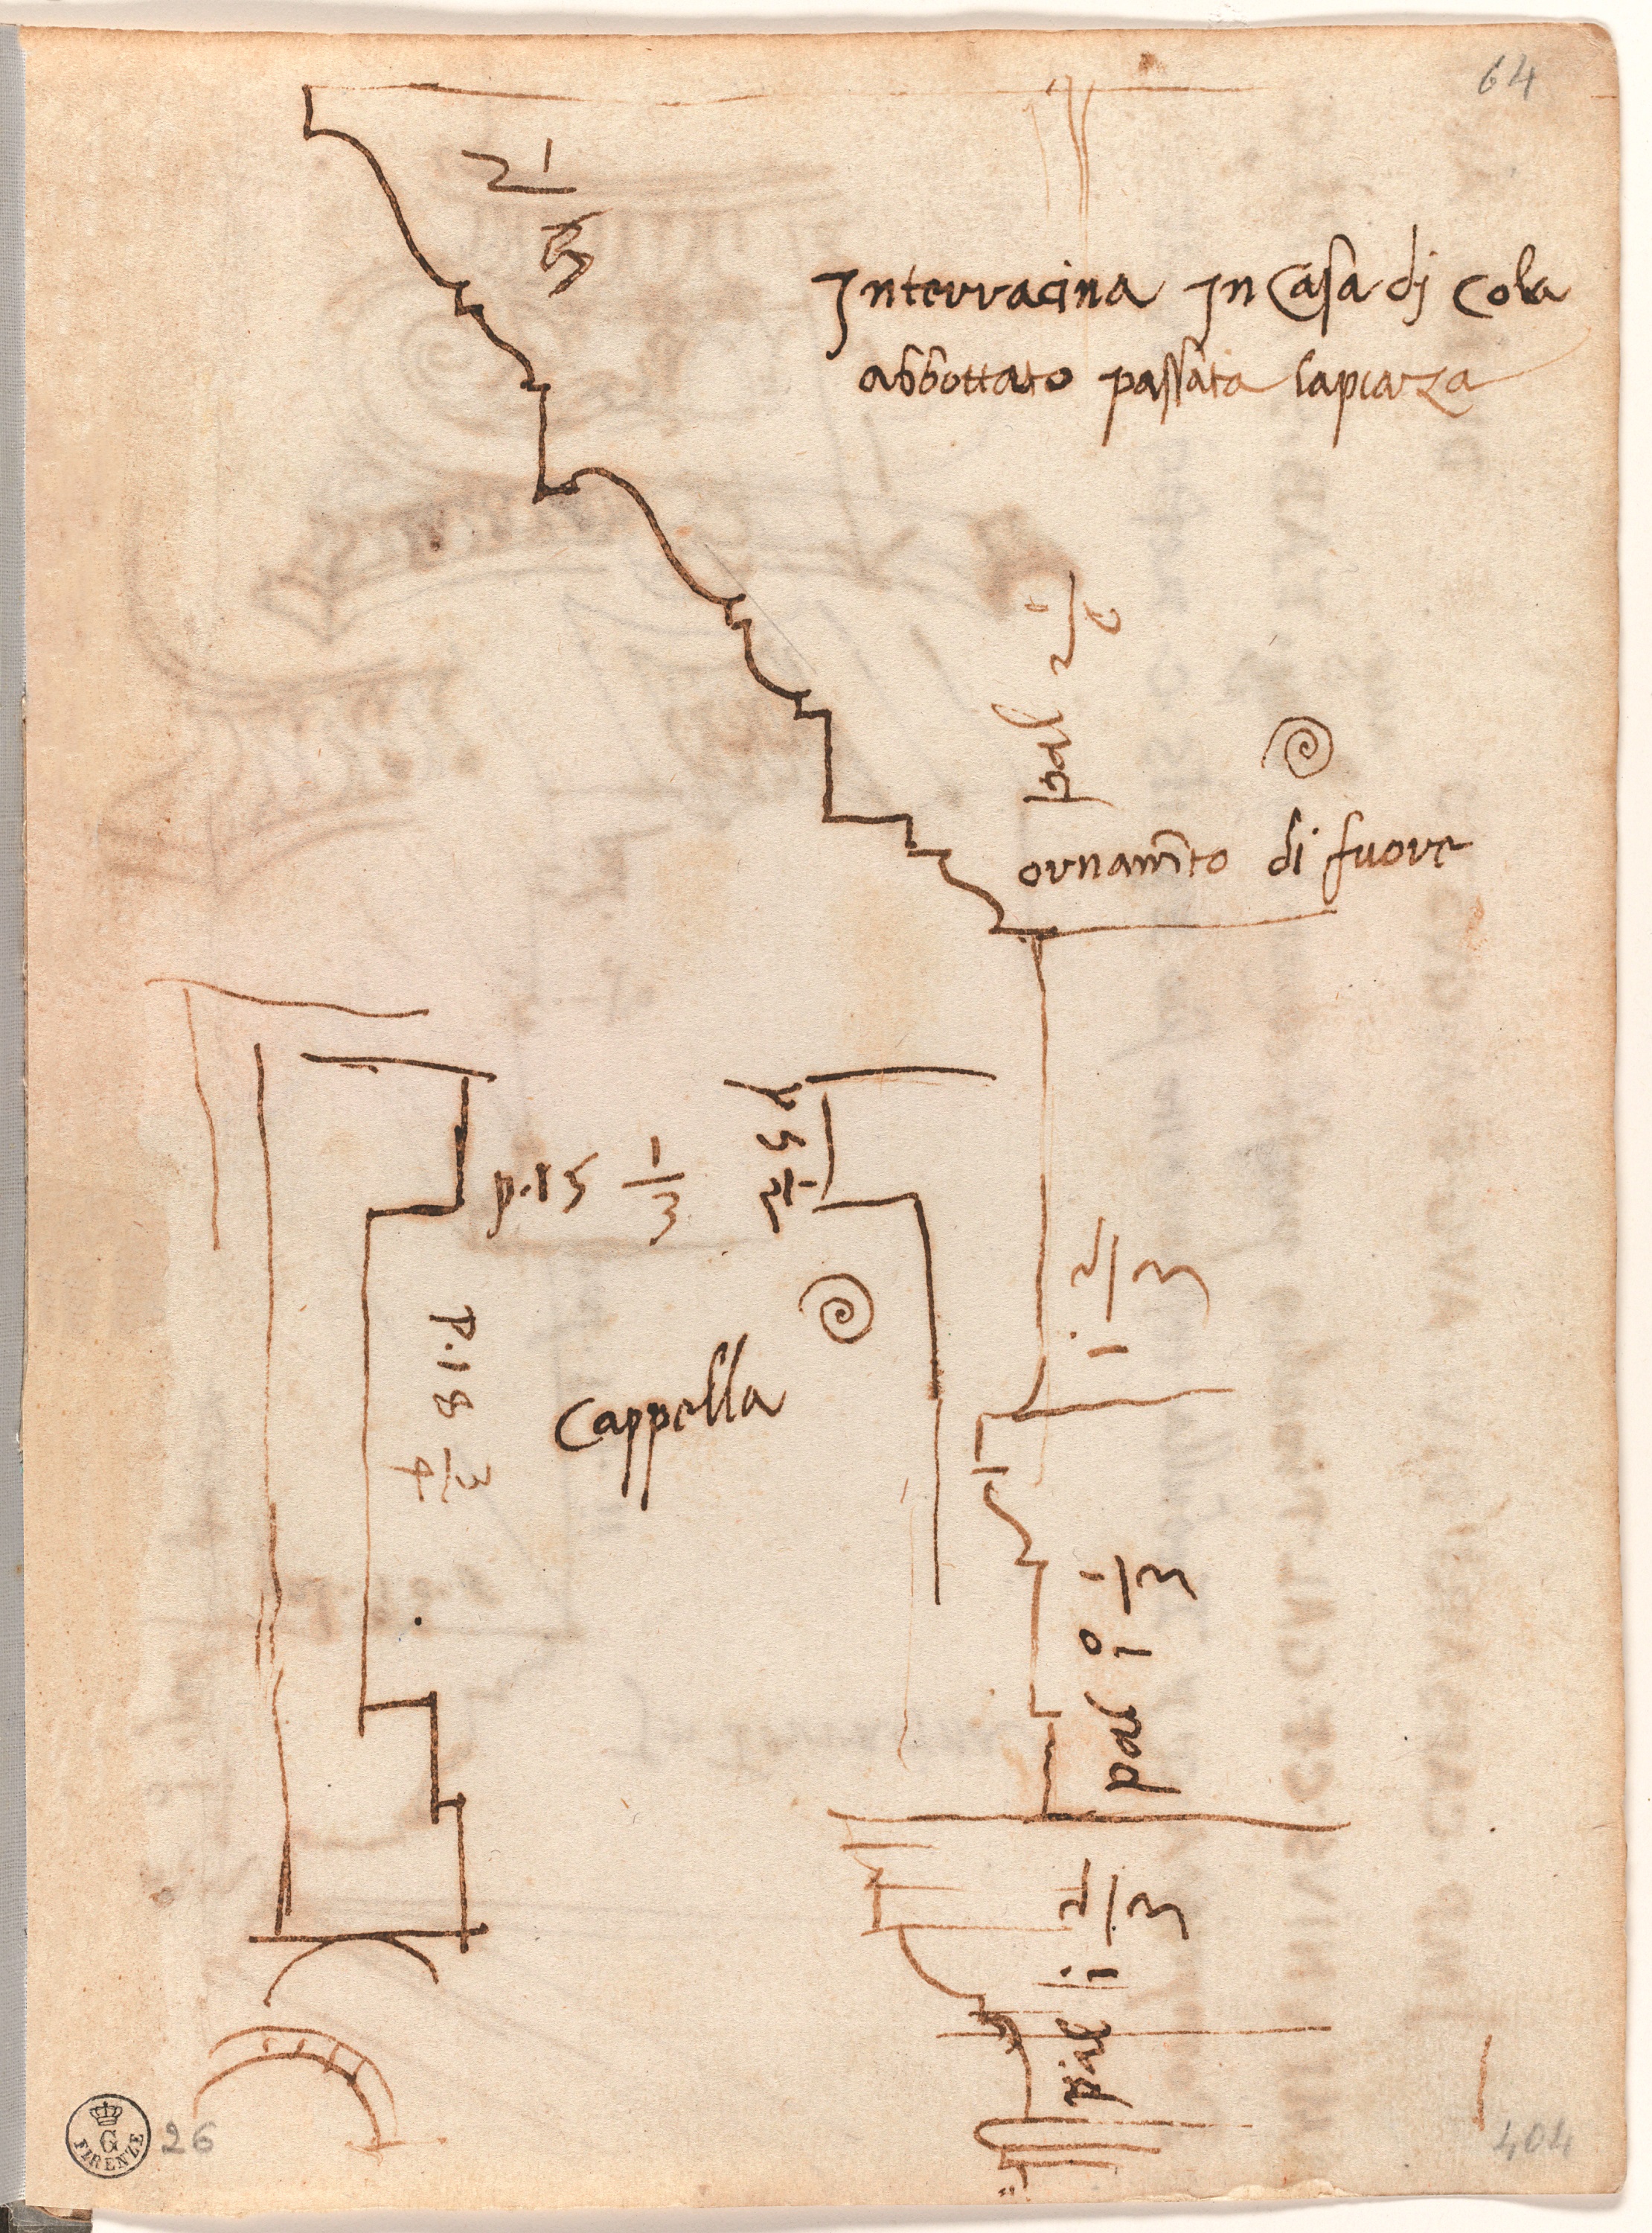 64
2 1/5
Interracina In Casa dj Cola
abbottato passata lapiaza
pal 2
ornam̄to di fuore
p. 15 1/3
p 5 1/2
2/3
p. 18 3/4
Cappella
pal 1/3
pal 2/3
G
FIRENZE
26
404